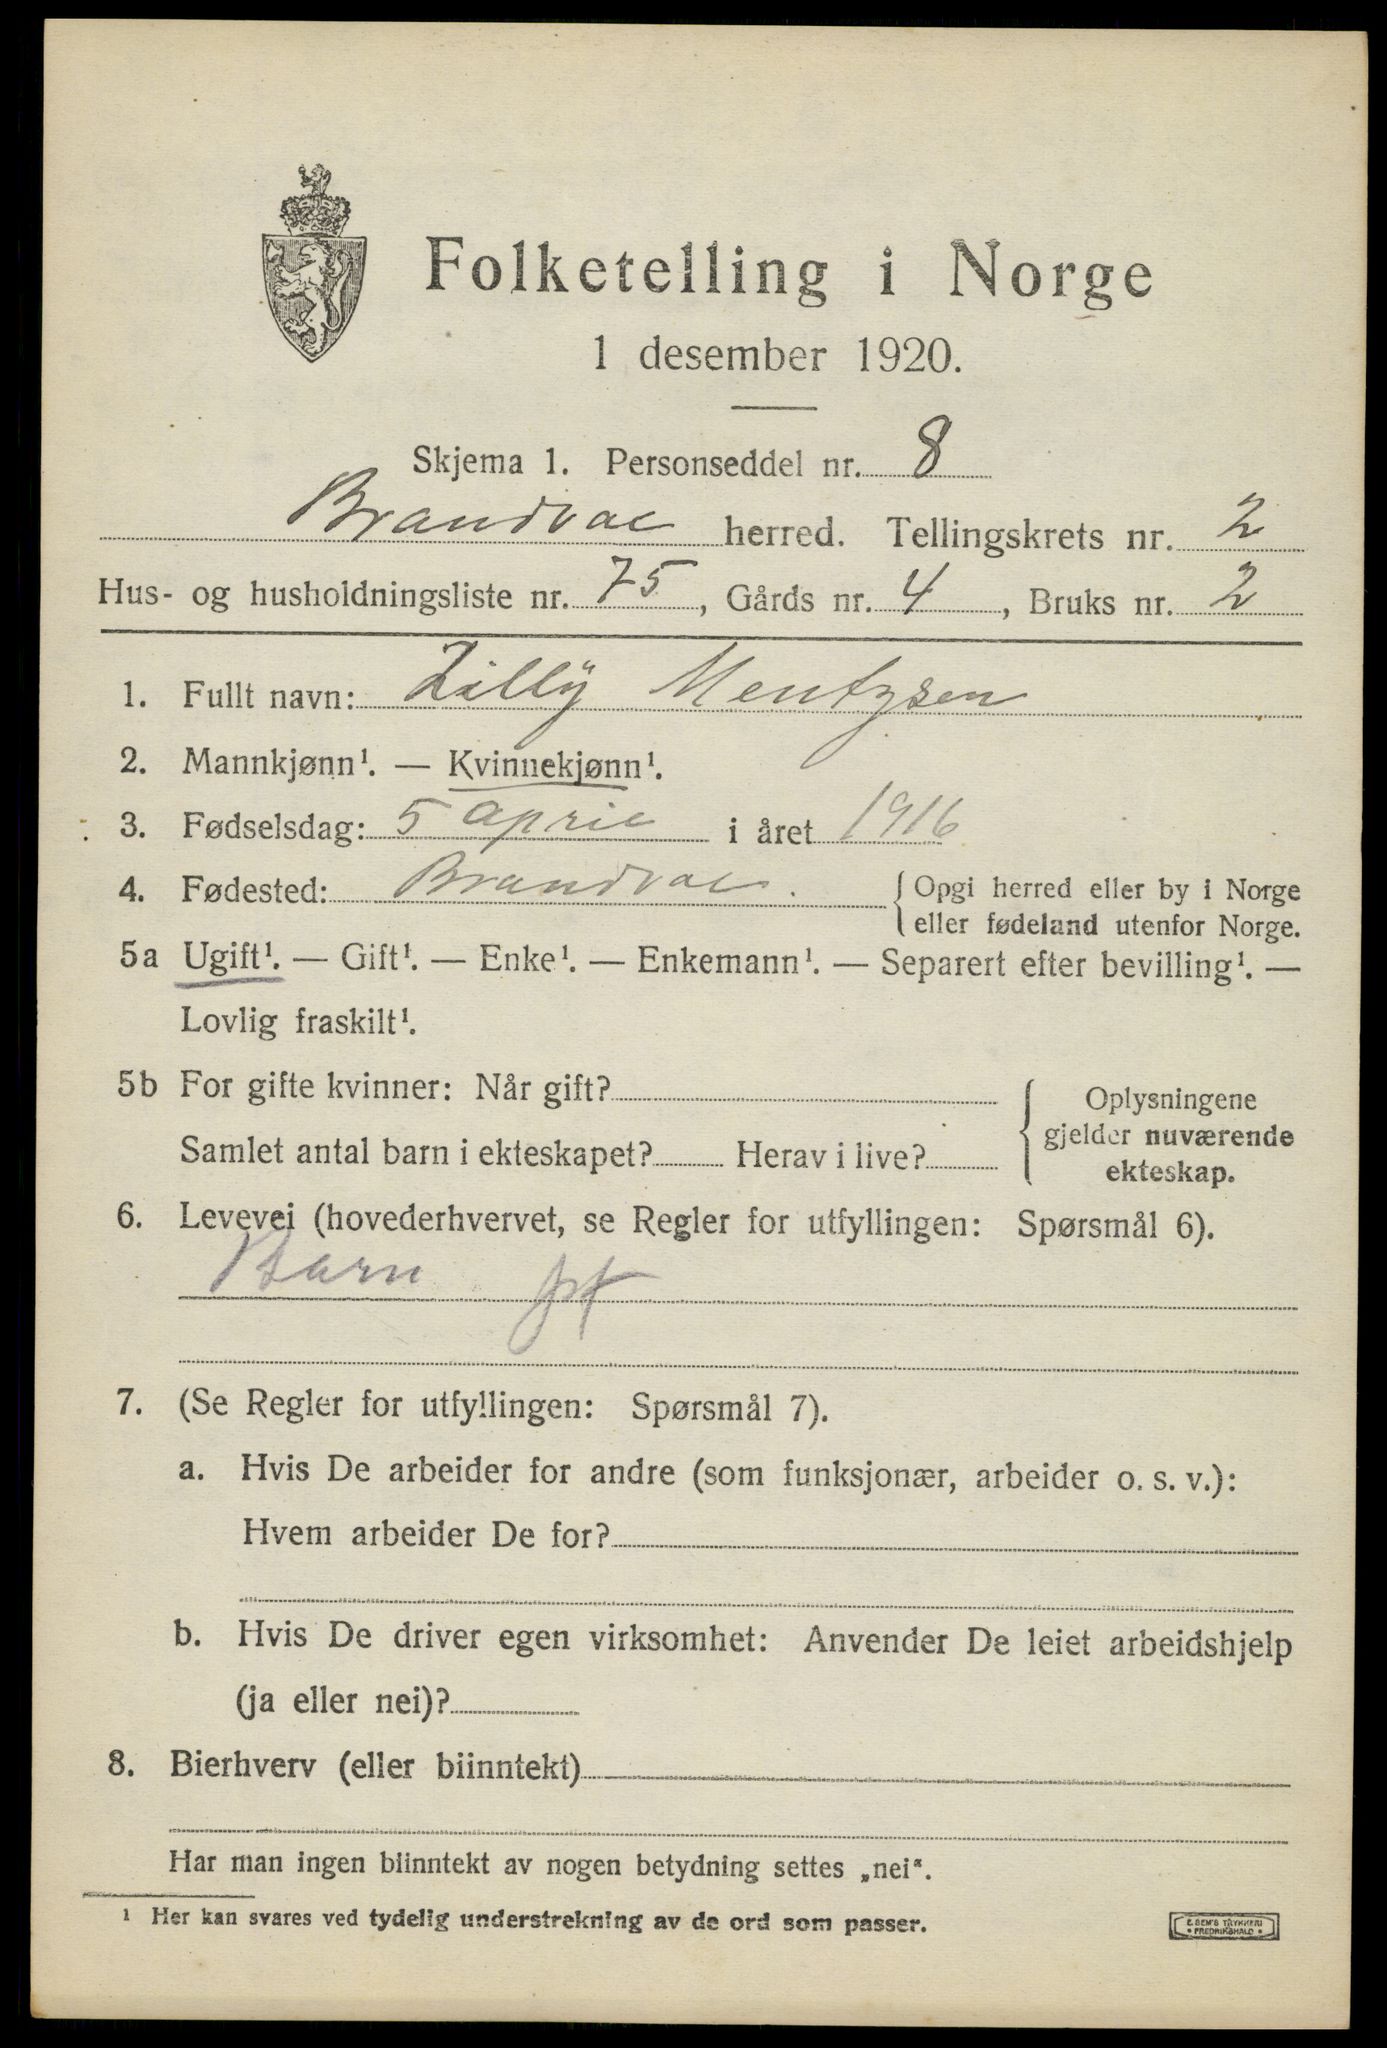 Folketelling i Norge
1 desember 1920.
Skjema 1. Personseddel nr. 8
Brandval herred. Tellingskrets nr. 2
Hus- og husholdningsliste nr. 75, Gårds nr. 4, Bruks nr. 2
1. Fullt navn: Lilly Mentzsen
2. Mannkjønn¹. — Kvinnekjønn¹.
3. Fødselsdag: 5 april i året 1916
4. Fødested: Brandval. { Opgi herred eller by i Norge
eller fødeland utenfor Norge.
5a Ugift¹. — Gift¹. — Enke¹. — Enkemann¹. — Separert efter bevilling¹. —
Lovlig fraskilt¹.
5b For gifte kvinner: Når gift?
Samlet antal barn i ekteskapet? Herav i live?
Oplysningene
gjelder nuværende
ekteskap.
6. Levevei (hovederhvervet, se Regler for utfyllingen: Spørsmål 6).
Barn
7. (Se Regler for utfyllingen: Spørsmål 7).
a. Hvis De arbeider for andre (som funksjonær, arbeider o. s. v.):
Hvem arbeider De for?
b. Hvis De driver egen virksomhet: Anvender De leiet arbeidshjelp
(ja eller nei)?
8. Bierhverv (eller biinntekt)
Har man ingen biinntekt av nogen betydning settes „nei".
¹ Her kan svares ved tydelig understrekning av de ord som passer.
E. SEM'S TRYKKERI
• FREDRIKSHALD •